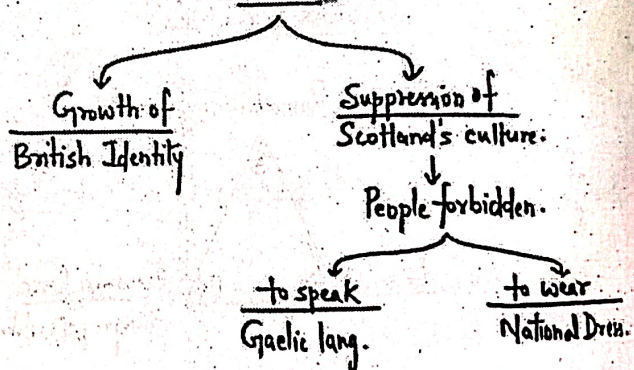 Growth of
British Identity
Suppression of
Scotland's culture.
People forbidden.
to speak
Gaelic lang.
to wear
National Dress.